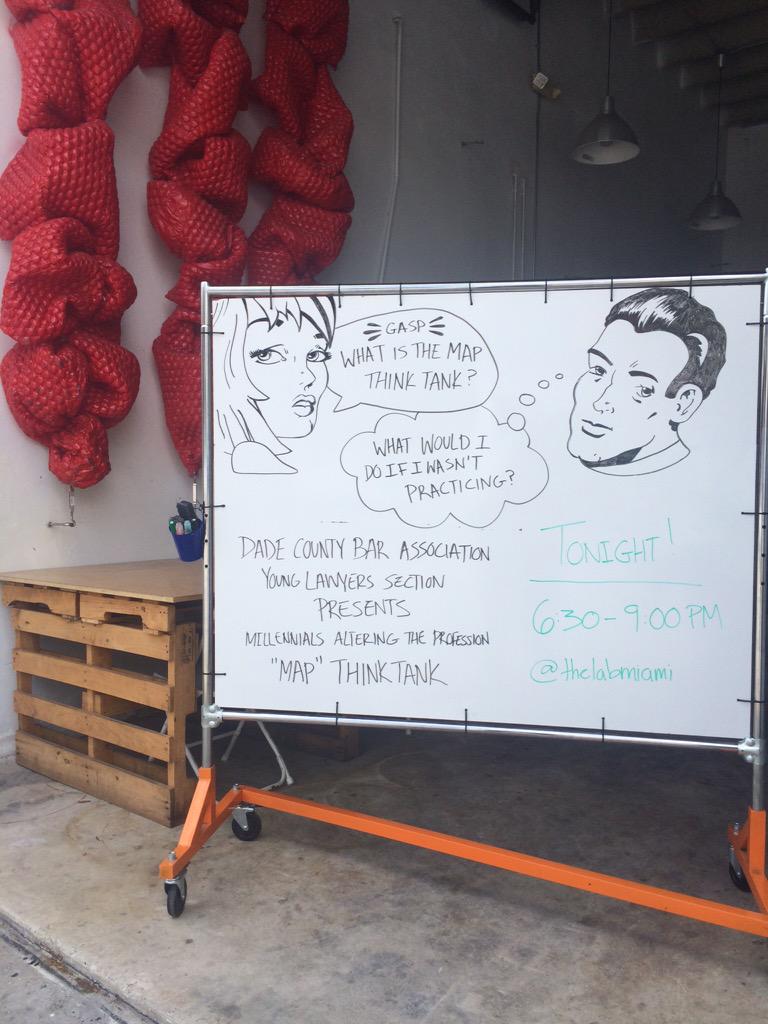 GASP
WHAT IS THE MAP
THINK TANK?
WHAT WOULD I
DO IF I WASN'T
PRACTICING?
DADE COUNTY BAR ASSOCIATION
YOUNG LAWYERS SECTION
PRESENTS
MILLENNIALS ALTERING THE PROFESSION
"MAP" THINK TANK
TONIGHT!
6:30-9:00 PM
@thelabmiami